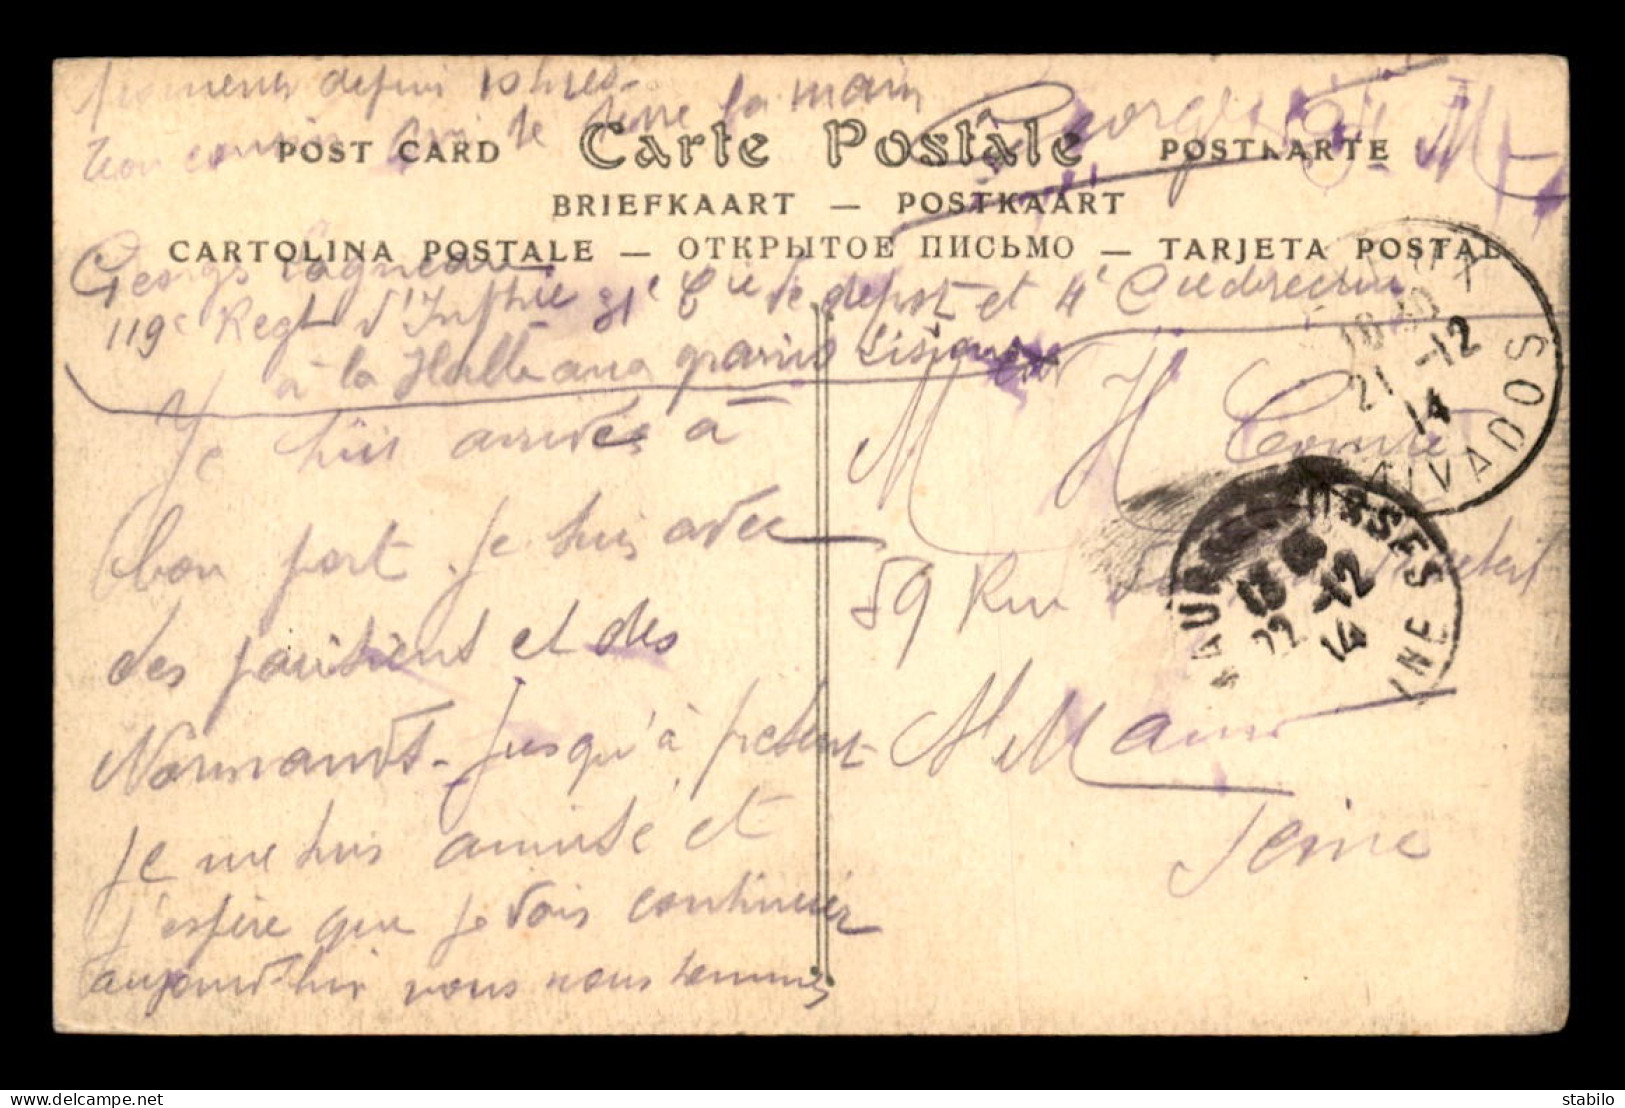 promenés depuis 10 hres.
Ton cousin qui te serre la main
Georges
POST CARD Carte Postale POSTKARTE
BRIEFKAART — POSTKAART
CARTOLINA POSTALE — ОТКРЫТОЕ ПИСЬМО — TARJETA POSTAL
Georges Cagneau
119e Regt d'Inftrie 31e Cie de depot et 4e
à la Halle aux grains Lisieux
Je suis arrivée à
bon port. Je suis avec
des parisiens et des
Normands. Jusqu'à présent
je me suis amusé et
j'espère que je vais continuer
aujourd'hui nous nous sommes
M H Comte
59 Rue
St Maur
Seine
18 30
21 -12
14
CALVADOS
FOSSES
13
22 -12
14
SEINE
stabilo